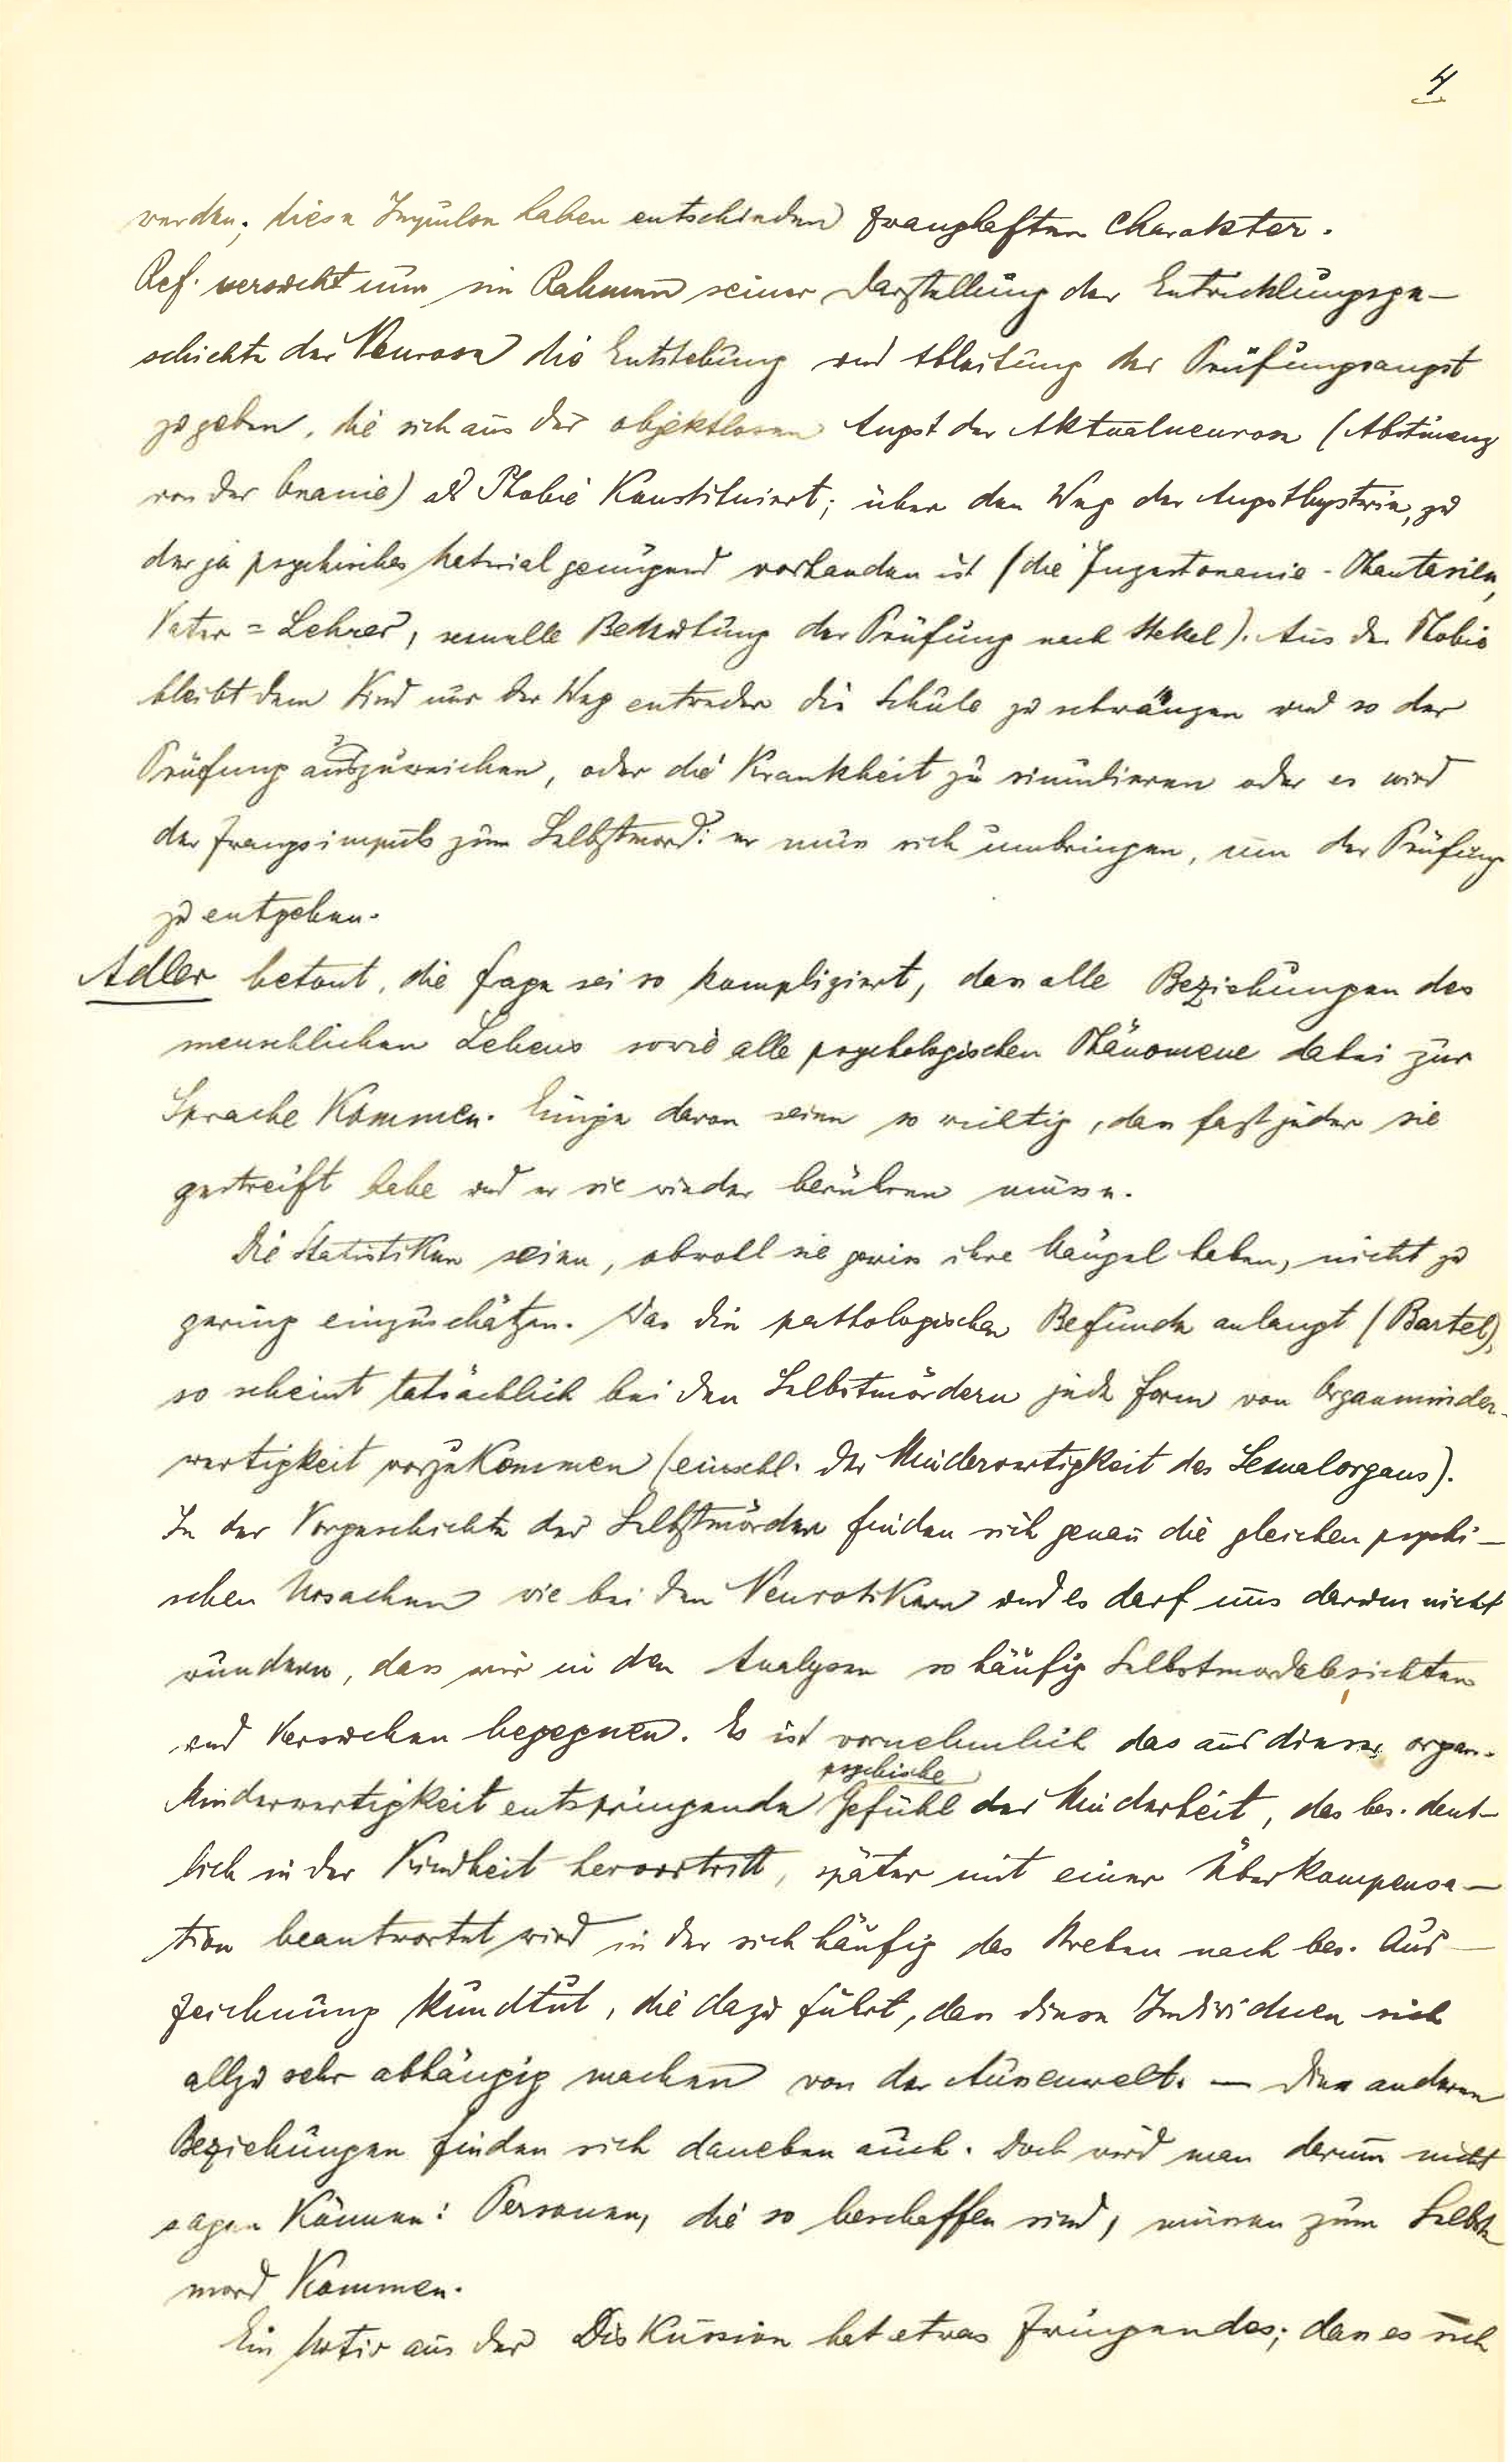 4
werden; diese Impulse haben entschieden zwanghaften Charakter.
Ref. versucht nun im Rahmen seiner Darstellung der Entwicklungsge-
schichte der Neurose die Entstehung und Ableitung der Prüfungsangst
zu geben, die sich aus der objektlosen Angst der Aktualneurose (Abstinenz
von der Onanie) als Phobie Konstituiert; über den Weg der Angsthysterie, zu
der ja psychisches Material genügend vorhanden ist (die Inzestonanie-Phantasien,
Vater = Lehrer, sexuelle Bedeutung der Prüfung nach Stekel). Aus der Phobie
bleibt dem Kind nur der Weg entweder die Schule zu schwänzen und so der
Prüfung auszuweichen, oder die Krankheit zu simulieren oder es wird
der Zwangsimpuls zum Selbstmord: er muss sich umbringen, um der Prüfung
zu entgehen.
Adler betont, die Frage sei so kompliziert, dass alle Beziehungen des
menschlichen Lebens sowie alle psychologischen Phänomene dabei zur
Sprache Kommen. Einige davon seien so wichtig, dass fast jeder sie
gestreift habe und er sie wieder berühren müsse.
Die Statistiken seien, obwohl sie gewiss ihre Mängel haben, nicht zu
gering einzuschätzen. Was die pathologischen Befunde anlangt (Bartel),
so scheint tatsächlich bei den Selbstmördern jede Form von Organminder-
wertigkeit vorzukommen (einschl. der Minderwertigkeit des Sexualorgans).
In der Vorgeschichte der Selbstmörder finden sich genau die gleichen psychi-
schen Ursachen wie bei den Neurotikern und es darf uns darum nicht
wundern, dass wir in den Analysen so häufig Selbstmordabsichten
und Versuchen begegnen. Es ist vornehmlich das aus dieser organ.
psychische
Minderwertigkeit entspringende Gefühl der Minderheit, das bes. deut-
lich in der Kindheit hervortritt, später mit einer Überkompensa-
tion beantwortet wird in der sich häufig das Streben nach bes. Aus-
zeichnung kundtut, die dazu führt, dass diese Individuen sich
allzu sehr abhängig machen von der Aussenwelt. — Diese anderen
Beziehungen finden sich daneben auch. Doch wird man darum nicht
sagen Können: Personen, die so beschaffen sind, müssen zum Selbst-
mord Kommen.
Ein Motiv aus der Diskussion hat etwas Zwingendes; dass es sich